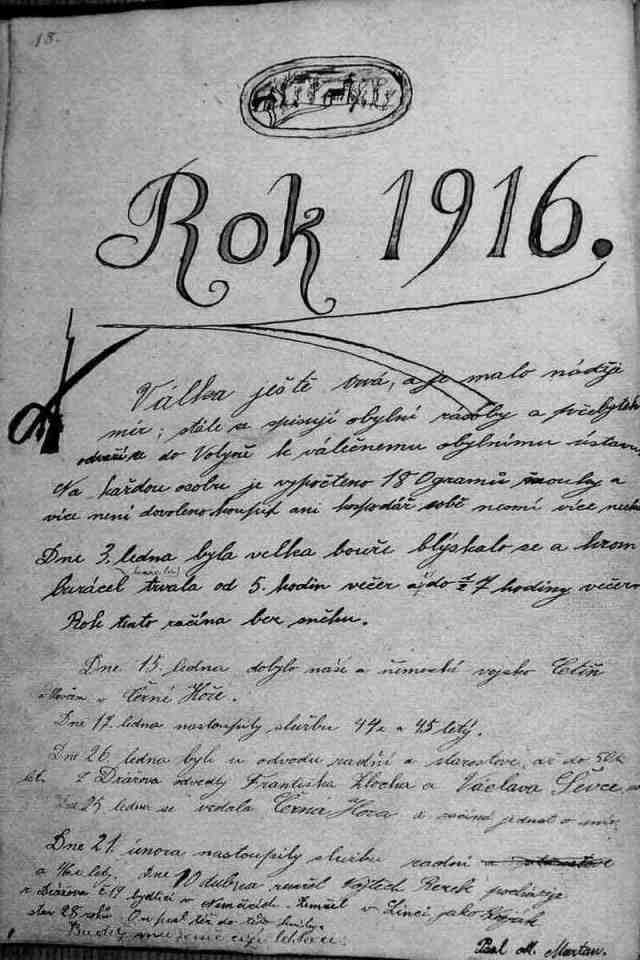 18.
Rok 1916.
Válka ještě trvá, a je malo náděje
mír; stále se spisují obylní zásoby a přebytek
odváží se do Volyně k válečnému obylnímu ústavu
Na každou osobu je vypočteno 180 gramů mouky a
více není dovoleno koupit ani hospodář sobě nesmí více nechat
Dne 3. ledna byla velka bouře blýskalo se a hrom
burácel trvala od 5. hodin večer až do ½ 7 hodiny večerní
Rok tento začína bez sněhu.
Dne 13. ledna dobylo naše a německé vojsko Cetiň
v Černé Hoře.
Dne 17. ledna nastoupily službu 44 a 45 letý.
Dne 26. ledna byli u odvodu radní a starostové, až do 50
let. Z Drážova odvedly Františka Zlocha a Václava Ševce
Dne 25 ledna se vzdala Černá Hora a začíná jednat o mír.
Dne 21. února nastoupily službu radní a starostové
a letý. Dne 10 dubna zemřel Vojtech Rezek
z Drážova č. 19 bydlící v Němčicích. Zemřel v Linci, jako voják
stár 28 roků. On psal též do této knihy.
Budiž mu země lehkou.
Psal M. Martan.